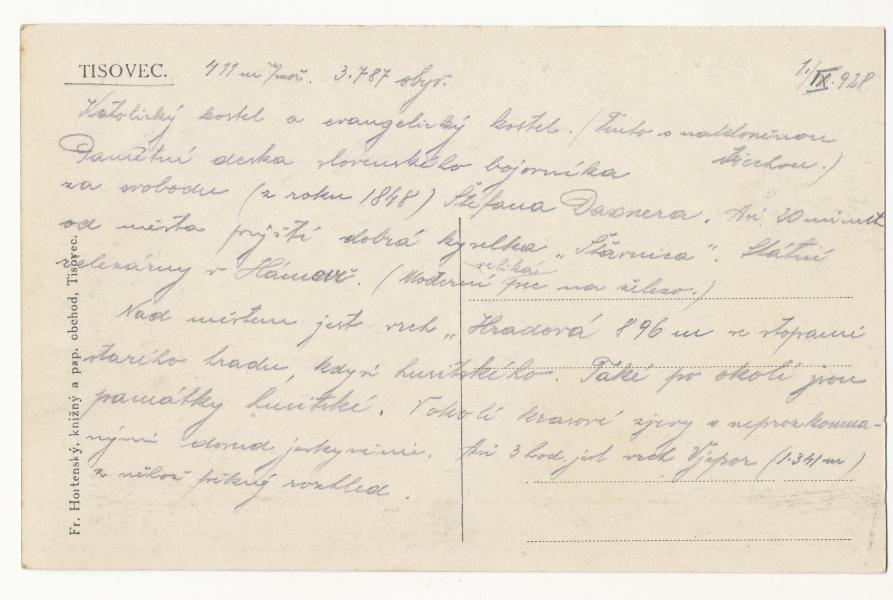 TISOVEC. 411 m n/moř. 3.787 obyv. 1./IX. 928
Katolický kostel a evangelický kostel. (Tento s nakloněnou
střechou.)
Pamětní deska slovenského bojovníka
za svobodu (z roku 1848) Štefana Daxnera. Asi 20 minut
od města prýští dobrá kyselka „Šťavnica". Státní
železárny v Hámoř. (Moderní veliká pec na železo.)
Nad městem jest vrch „Hradová 896 m se stopami
starého hradu, kdysi husitského. Také po okolí jsou
památky husitské. V okolí krasové zjevy s neprozkouma-
nými dosud jeskyněmi. Asi 3 hod. jest vrch Vjepor (1.341 m)
z něhož pěkný rozhled.
Fr. Hortenský, knižný a pap. obchod, Tisovec.